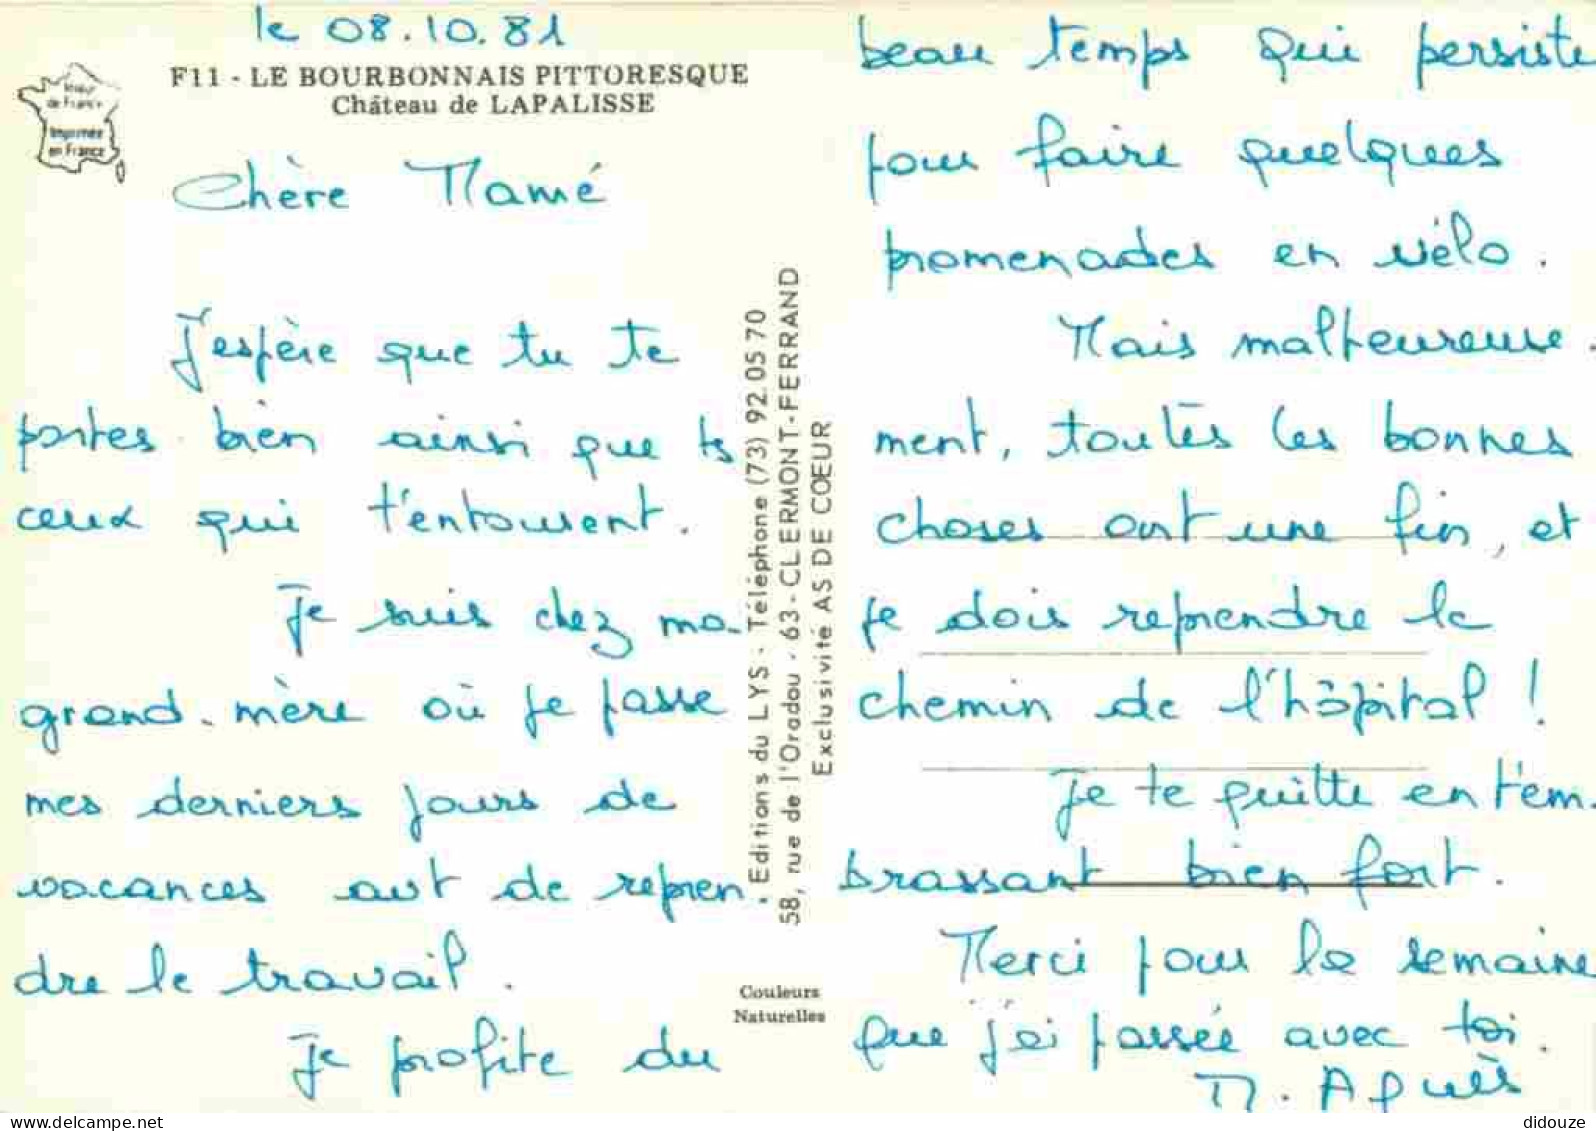 le 08.10.81
F11 - LE BOURBONNAIS PITTORESQUE
Château de LAPALISSE
de France
Imprimée
en France
Chère Mamé
J'espère que tu te
portes bien ainsi que ts
ceux qui t'entourent.
Je suis chez ma-
grand-mère où je passe
mes derniers jours de
vacances avt de repren
dre le travail.
Je profite du
Editions du LYS - Téléphone (73) 92.05 70
58, rue de l'Oradou - 63 - CLERMONT-FERRAND
Exclusivité AS DE CŒUR
Couleurs
Naturelles
beau temps qui persiste
pour faire quelques
promenades en vélo.
Mais malheureuse-
ment, toutes les bonnes
choses ont une fin, et
je dois reprendre le
chemin de l'hôpital !
Je te quitte en t'em-
brassant bien fort.
Merci pour la semaine
que j'ai passée avec toi.
M. Agnès
didouze